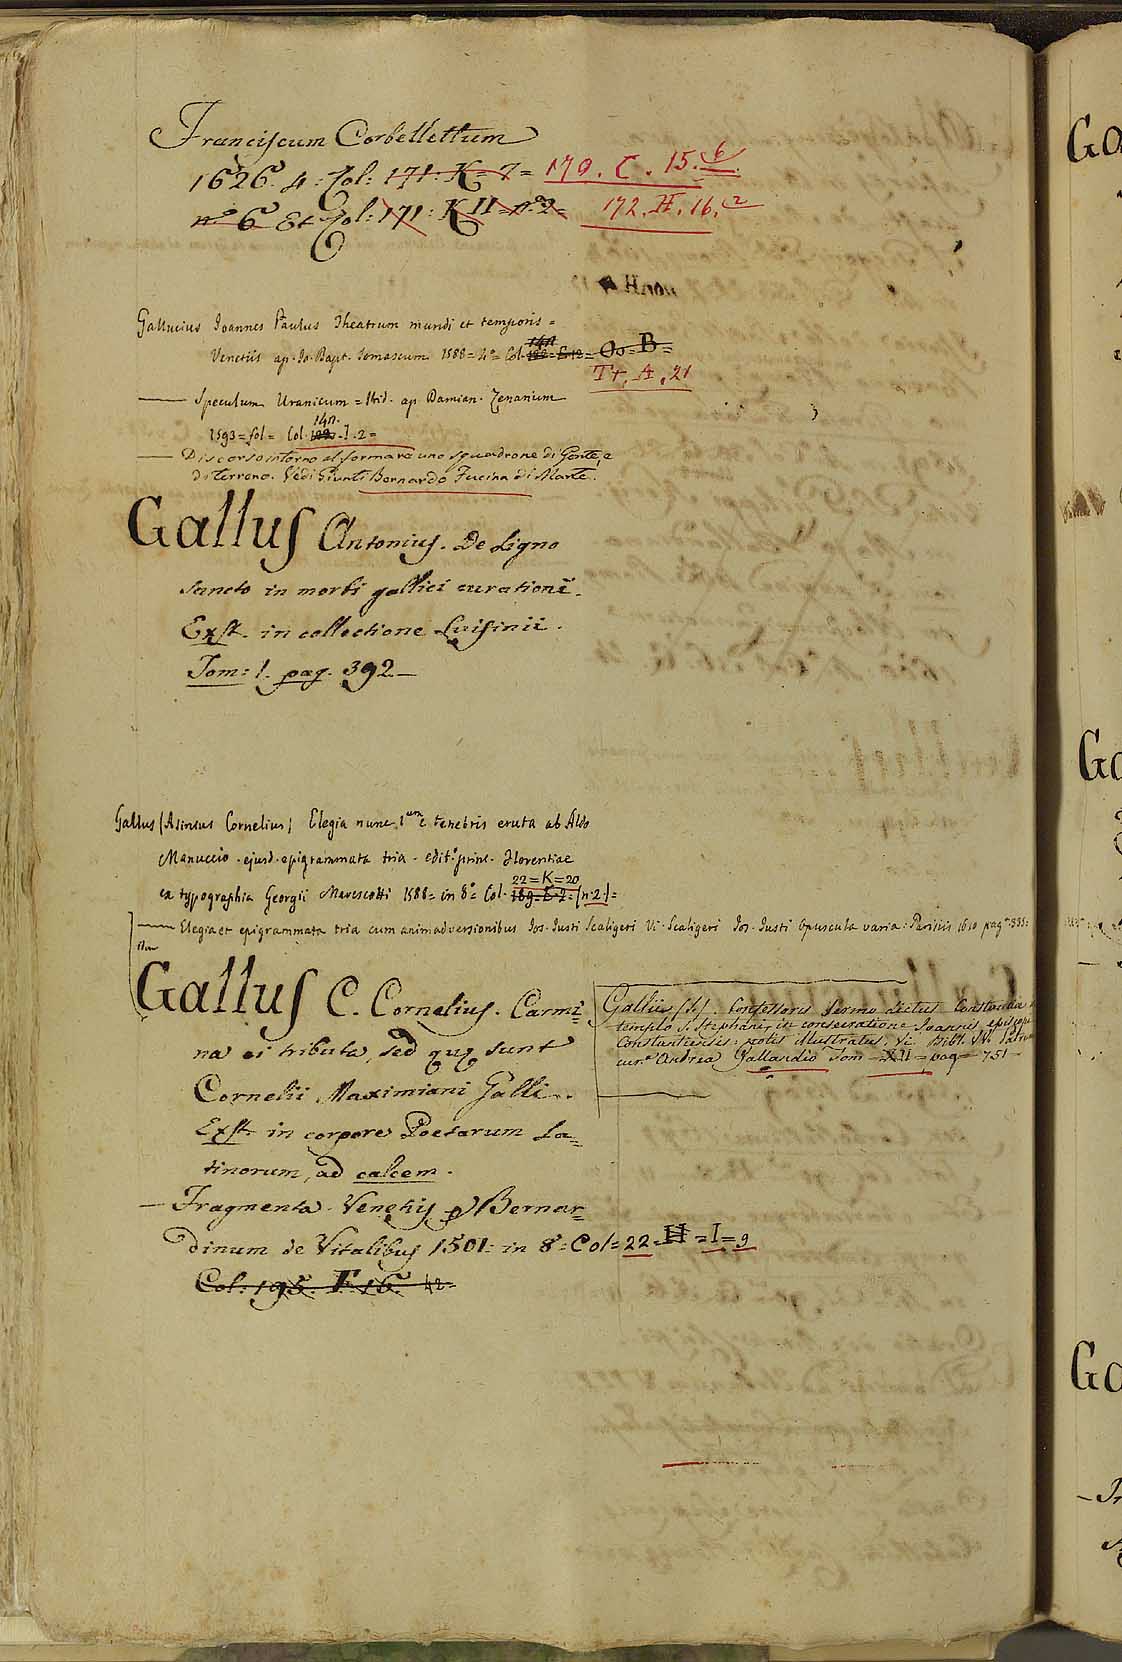 Franciscum Corbellettum
1626. 4: Col: 171: K= 7= 170. C. 15. 6
n° 6 Et Col: 171: K II= n. 2= 172. H. 16. 2
Gallucius Joannes Paulus Theatrum mundi et temporis=
Venetiis ap. Jo. Bapt. Somascum 1588= 4°= Col. = Oo= B=
Tt. A. 21
—— Speculum Uranicum= Ibid. ap. Damian. Zenarium
1593= fol= Col. I. 2=
— Discorso intorno al formare uno squadrone di Gente, e
di terreno. Vedi Giunti Bernardo Fucina di Marte.
Gallus Antonius. De Ligno
sancto in morbi gallici curatione.
Exst. in collectione Luisinii.
Tom: I. pag. 392—
Gallus (Asinius Cornelius) Elegia nunc 1um e tenebris eruta ab Aldo
Manuccio. ejusd. epigrammata tria. edit. princ. Florentiae
22=K=20
ex typographia Georgii Marescotti 1588= in 8°= Col. 189= E. 2= (n. 2.)=
—— Elegia et epigrammata tria cum animadversionibus Jos. Justi Scaligeri Vi. Scaligeri Jos. Justi Opuscula varia: Parisiis 1610 pag. 335=
Gallus C. Cornelius. Carmi=
na ei tributa, sed quę sunt
Cornelii Maximiani Galli.
Exst. in corpore Poetarum La=
tinorum, ad calcem.
— Fragmenta. Venetijs p Bernar=
dinum de Vitalibus 1501: in 8°= Col= 22= H= I= 9
Col: 195. F. 16. 42=
Gallus (S.) Confessoris Sermo dictus Constantiae in
templo S. Stephani, in consecratione Joannis episcopi
Constantiensis: notis illustratus. Vi. Bibl. VV. Patrum
cur.e Andrea Gallandio Tom= XII= pag= 751—